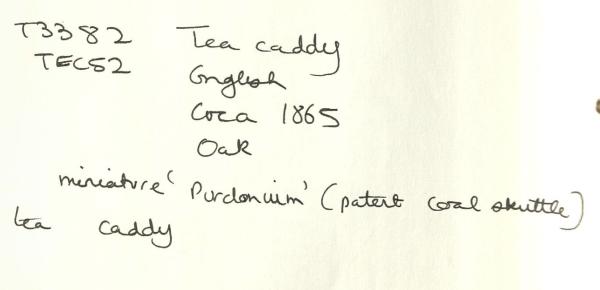 T3382 Tea caddy
TEC52 English
Circa 1865
Oak
miniature 'Purdonium' (patent coal skuttle)
tea caddy